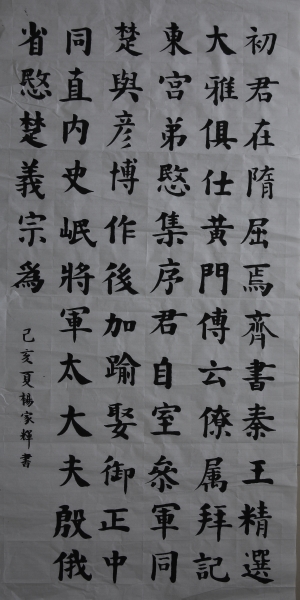 初君在隋屈焉齊書秦王精選
大雅俱仕黄門傅云僚属拜記
東宫弟愍集序君自室叅軍同
楚與彦博作後加踰娶御正中
同直内史岷將軍太大夫殷俄
省愍楚義宗爲
己亥夏楊家輝書